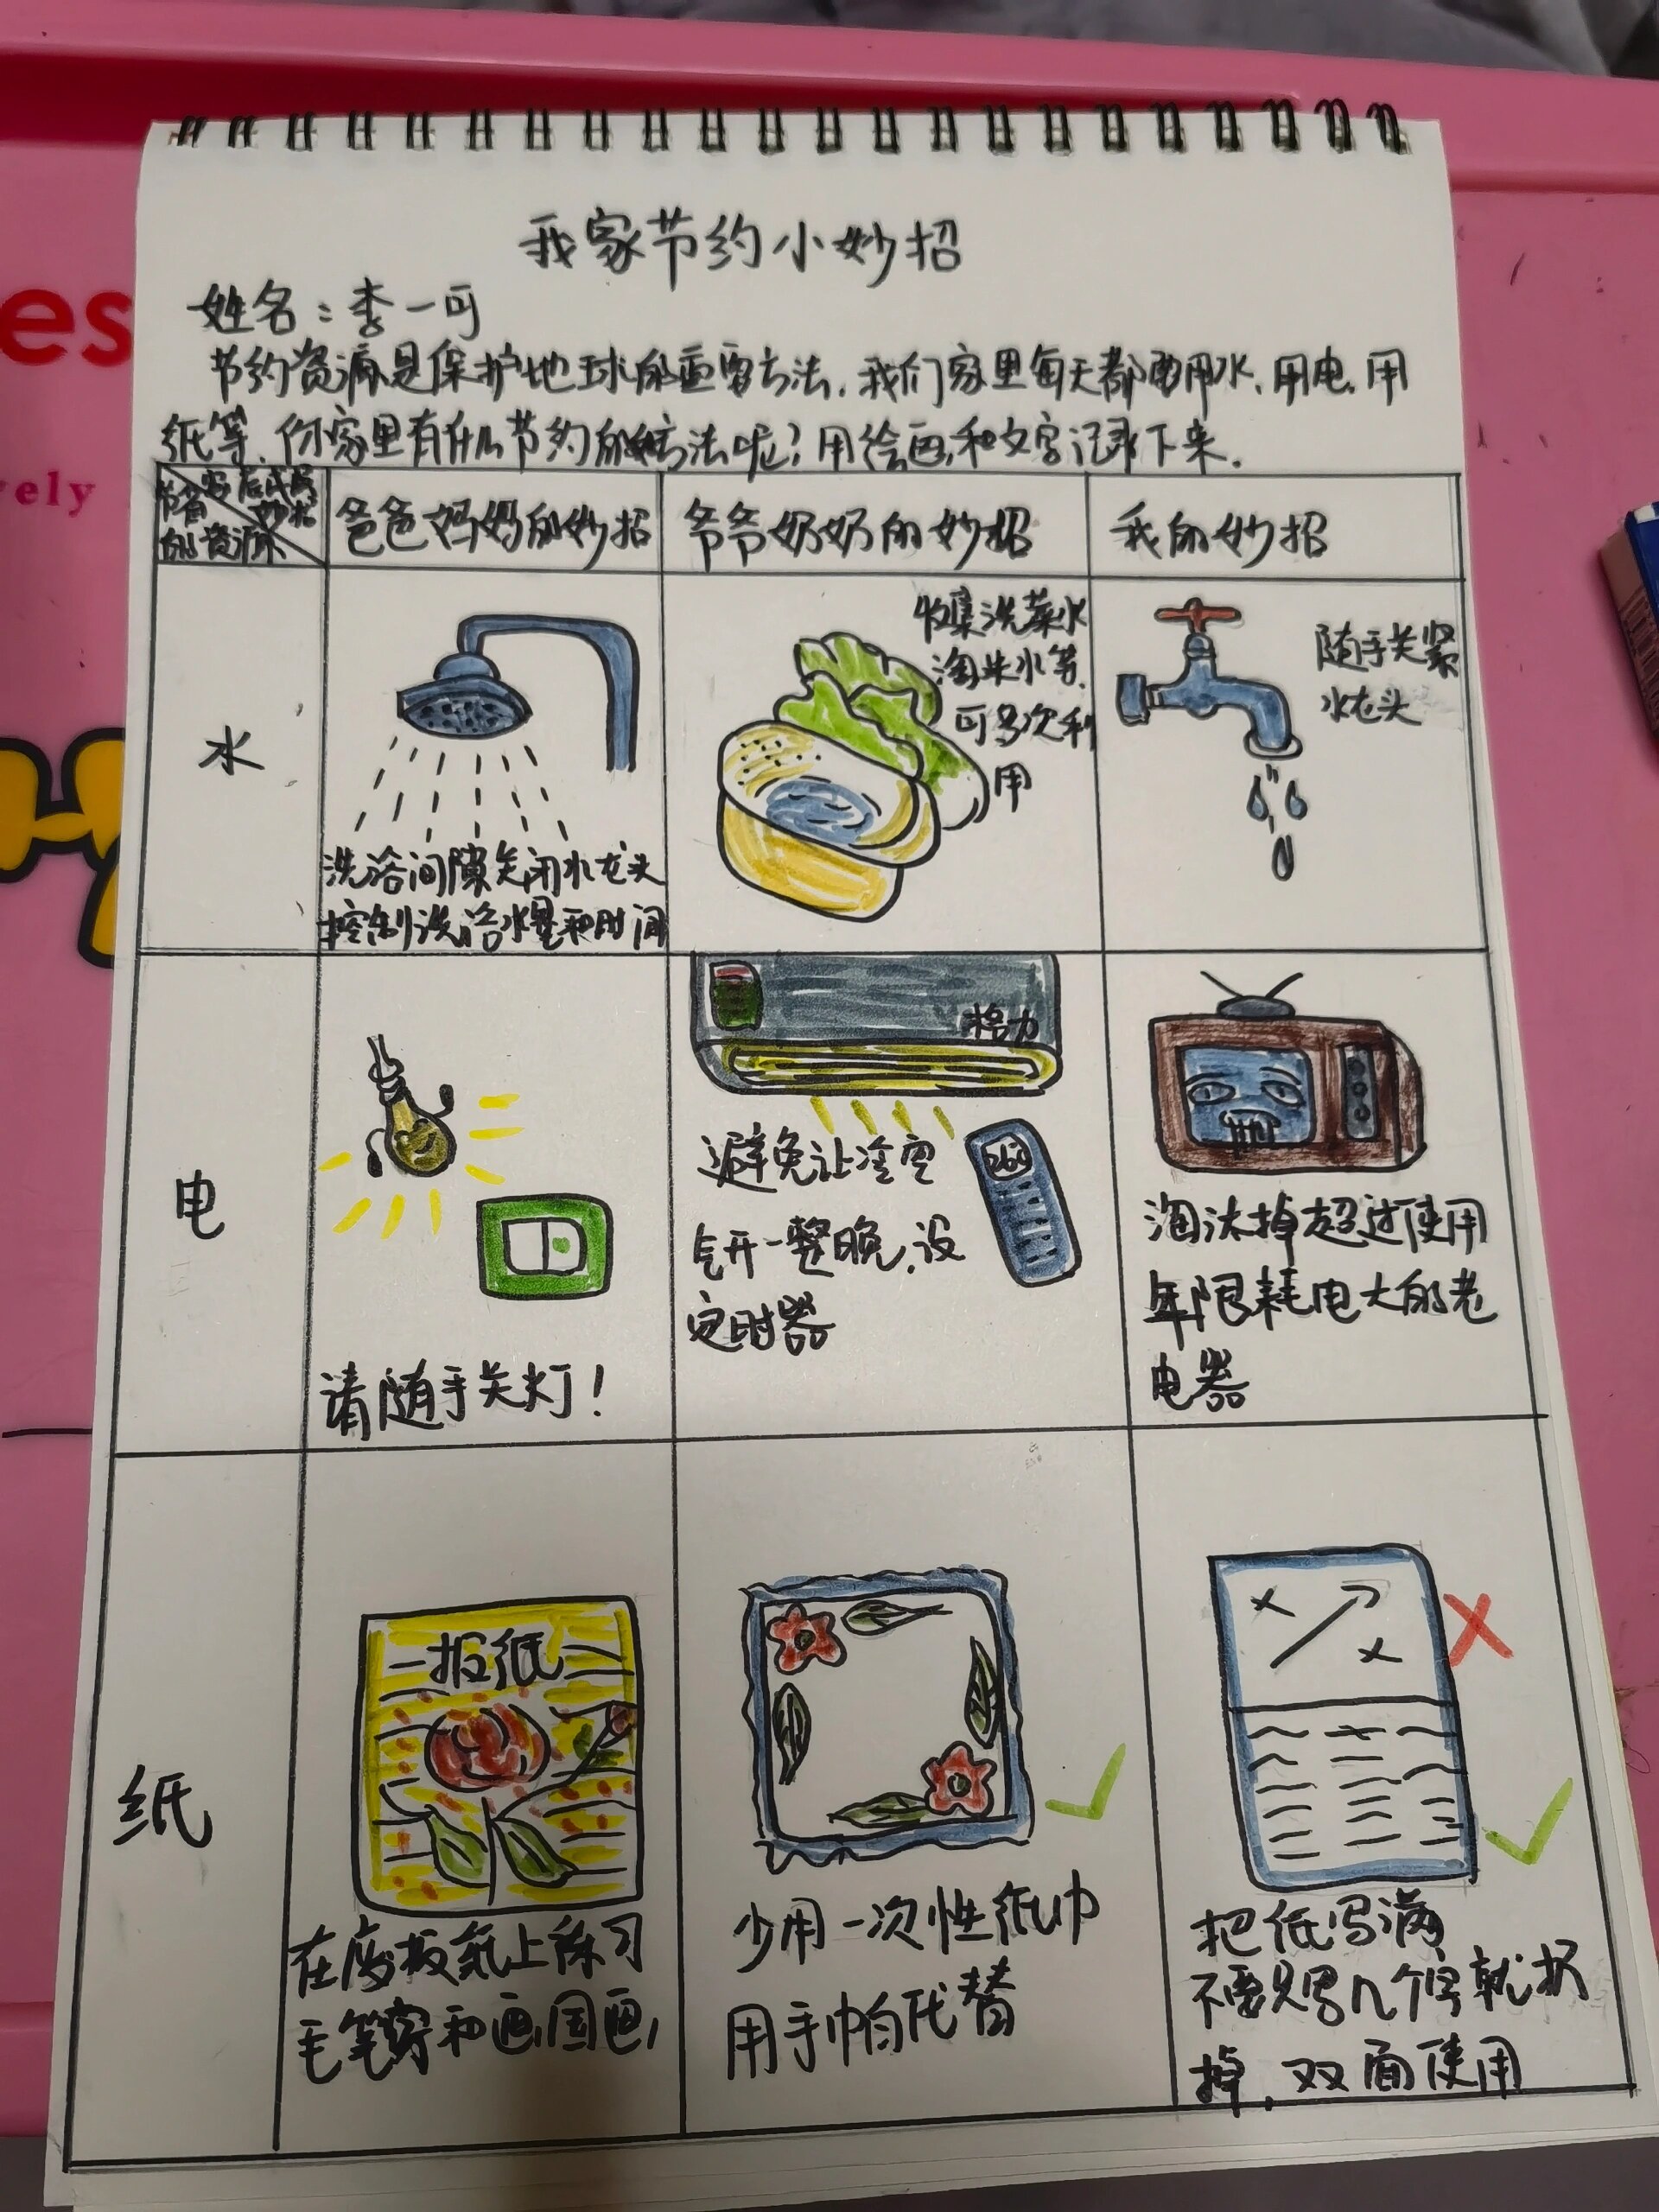 我家节约小妙招
姓名：李一可
节约资源是保护地球的重要方法.我们家里每天都要用水、用电、用
纸等、你家里有什么节约的方法呢？用绘画和文字记录下来.
家庭成员
妙招
节省
的资源
爸爸妈妈的妙招
爷爷奶奶的妙招
我的妙招
水
洗浴间隙关闭水龙头
控制洗浴水量和时间
收集洗菜水
淘米水等、
可多次利
用
随手关紧
水龙头
电
请随手关灯！
格力
26℃
避免让冷空
气开一整晚.设
定时器
淘汰掉超过使用
年限耗电大的老
电器
纸
报纸
在废报纸上练习
毛笔字和画国画,
少用一次性纸巾
用手帕代替
把纸写满
不要只写几个字就扔
掉,双面使用
es
ely